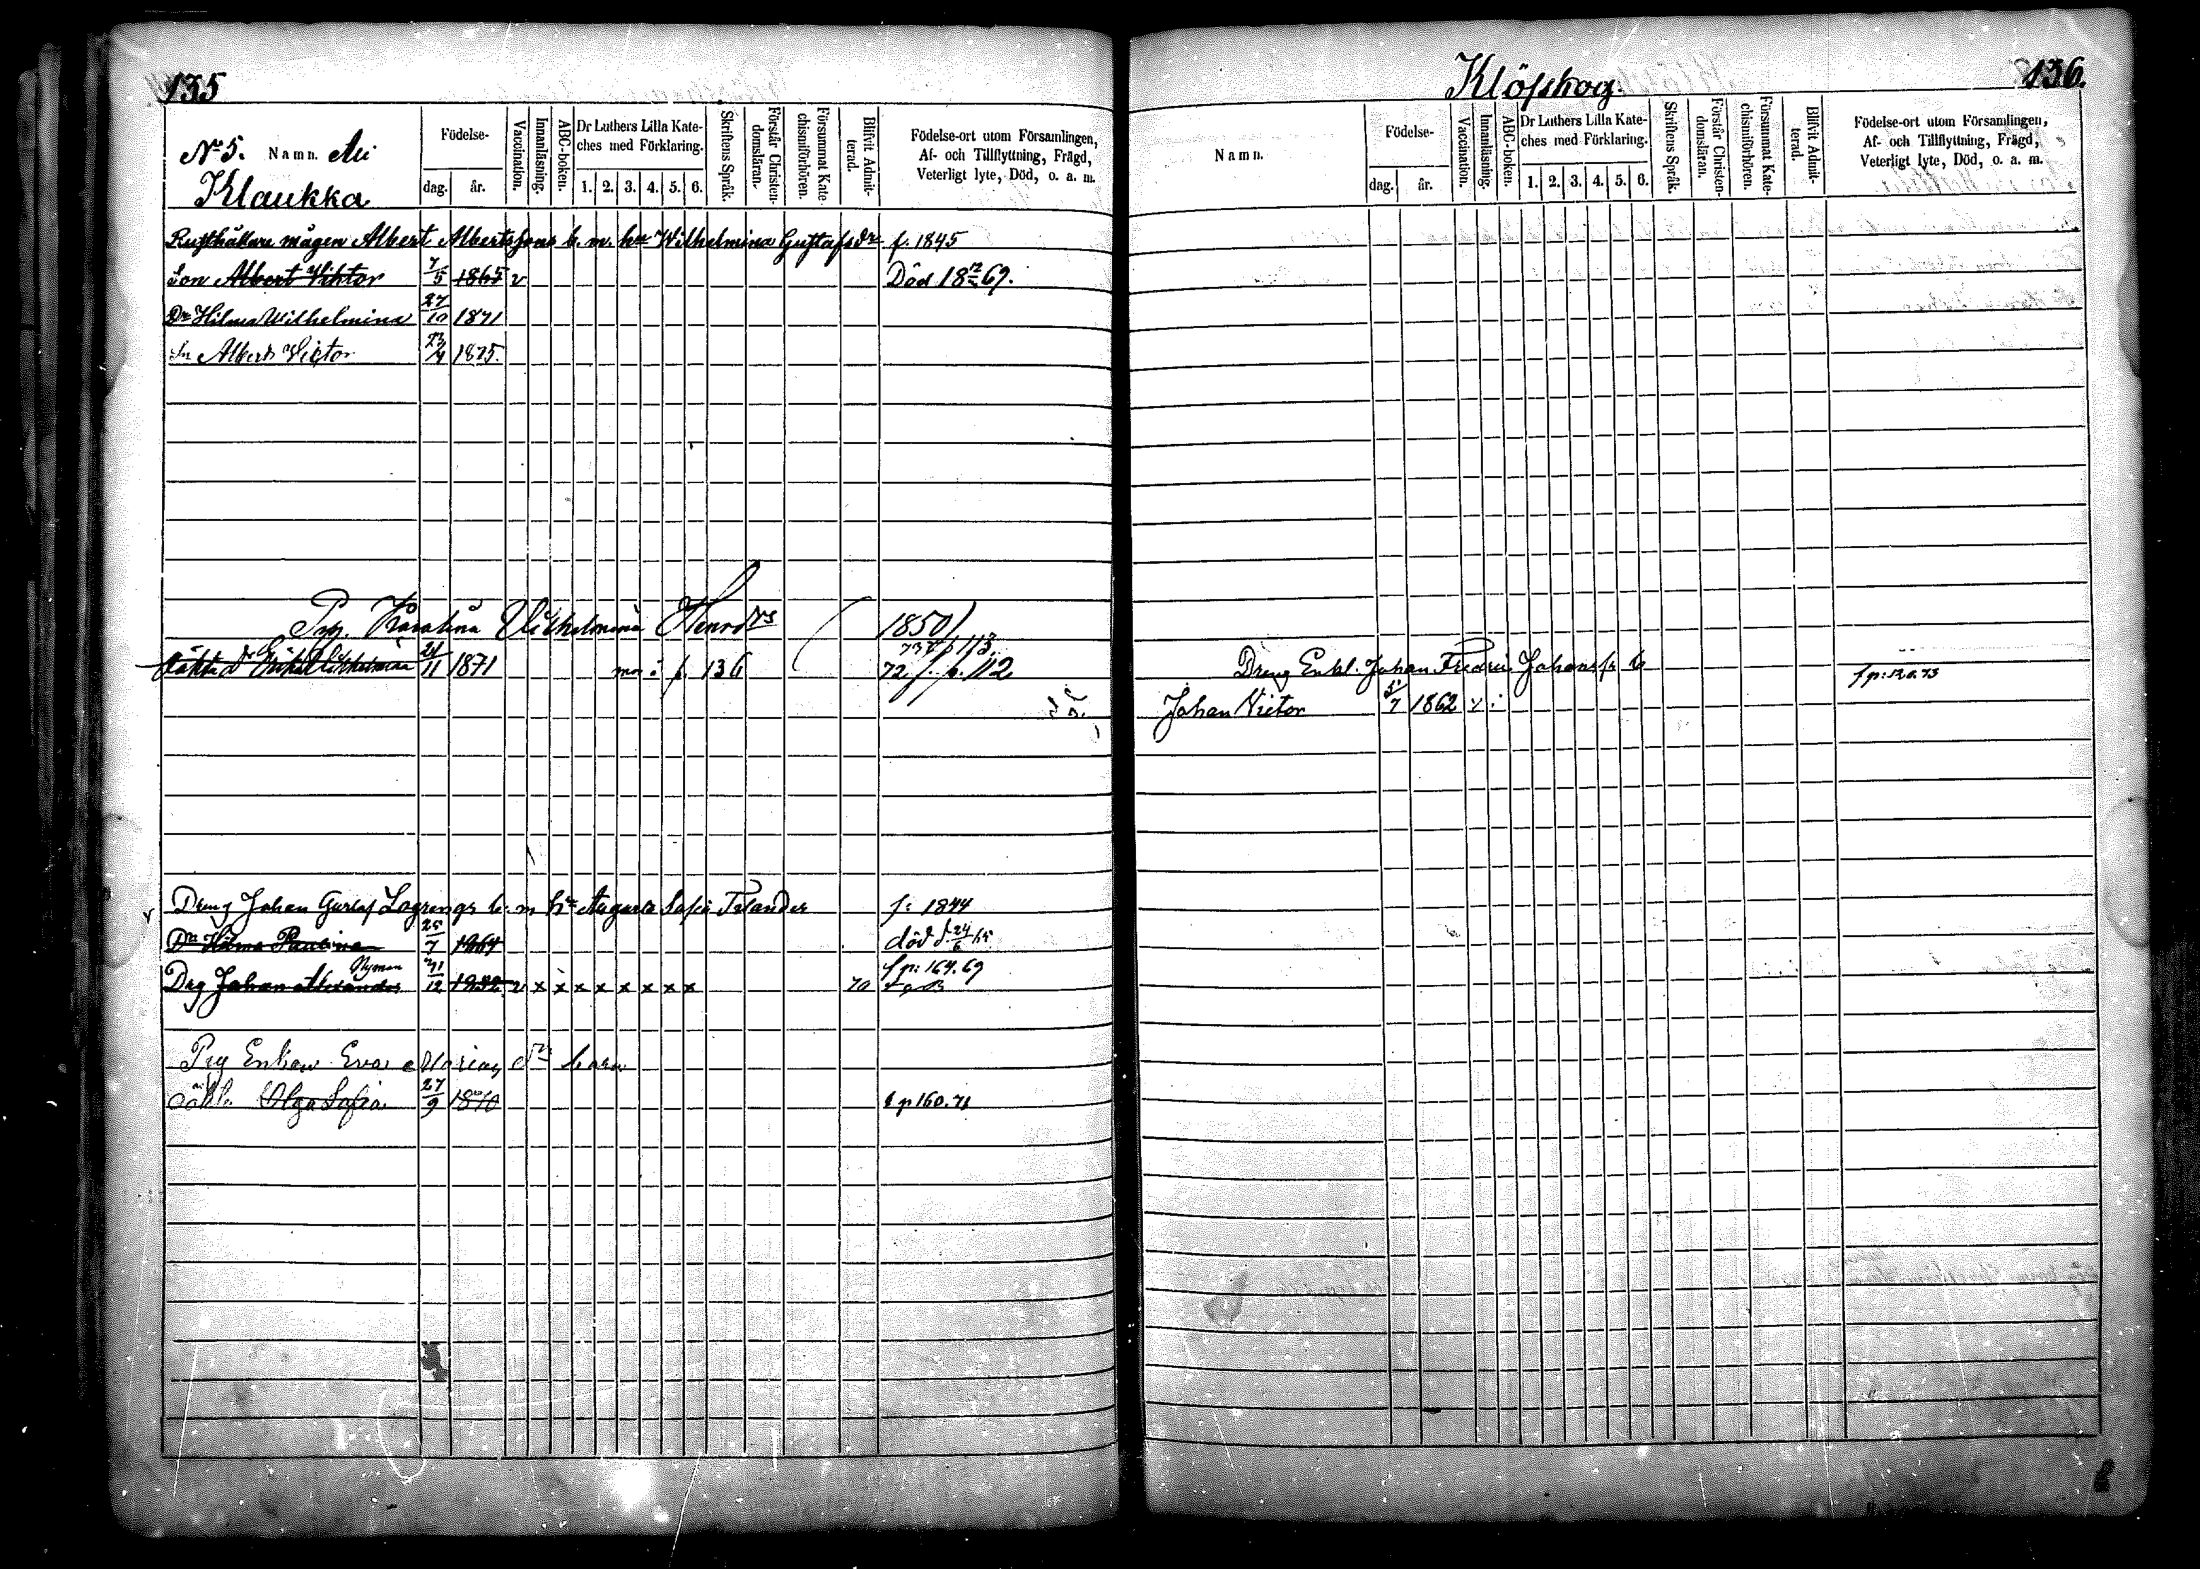 135
No 5. Namn. Ali
Klaukka
Födelse-
dag. år.
Vaccination.
Innanläsning.
ABC-boken.
Dr Luthers Lilla Kate-
ches med Förklaring.
1. 2. 3. 4. 5. 6.
Skriftens Språk.
Förstår Christen-
domsläran.
Försummat Kate-
chismiförhören.
Blifvit Admit-
terad.
Födelse-ort utom Församlingen,
Af- och Tillflyttning, Frägd,
Veterligt lyte, Död, o. a. m.
Rusthållare mågen Albert Albertssons b. m. hu Wilhelmina Gustafsdr f. 1845
Son Albert Viktor 7/5 1865 v Död 18 12/2 69.
Dr Hilma Wilhelmina 27/10 1871
Sn Albert Victor 23/4 1875.
Pig. Karolina Wilhelmina Henrdrs (1850)
73 f. p. 113.
oäkta dr Wilhelmina 24/11 1871 mor i p. 136 72 f. p. 112
Dreng Johan Gustaf Lagrengs b. m hu Augusta Sofia Telander f: 1844
Dr Hilma Paulina 25/7 1864 död d 24/6 65
Nyman f p: 164. 69
Drg Johan Alexander 21/12 1852 v x x x x x x x x 70
Pig Enkan Eva Marias drs barn
oäkta Olga Sofia 27/9 1870 f p 160. 71
Klöfskog.
136.
Namn.
Födelse-
dag. år.
Vaccination.
Innanläsning.
ABC-boken.
Dr Luthers Lilla Kate-
ches med Förklaring.
1. 2. 3. 4. 5. 6.
Skriftens Språk.
Förstår Christen-
domsläran.
Försummat Kate-
chismiförhören.
Blifvit Admit-
terad.
Födelse-ort utom Församlingen,
Af- och Tillflyttning, Frägd,
Veterligt lyte, Död, o. a. m.
Dreng Enkl. Johan Fredric Johanss b f p: 120. 73
Johan Victor 5/7 1862 v